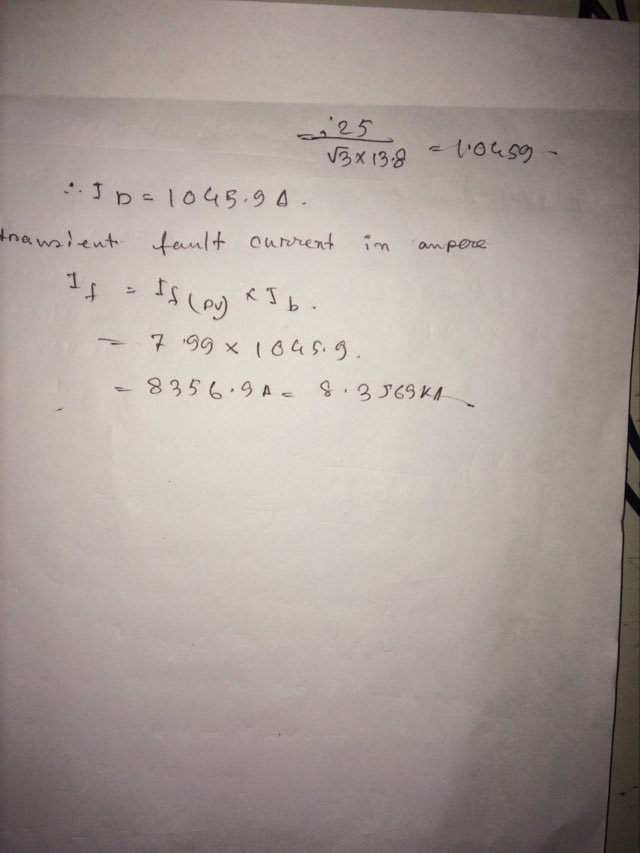 = 25 / √3 × 13.8 = 1.0459
∴ I b = 1045.9 A.
transient fault current in ampere
I f = I f (pu) × I b.
= 7.99 × 1045.9.
= 8356.9 A = 8.3569 KA